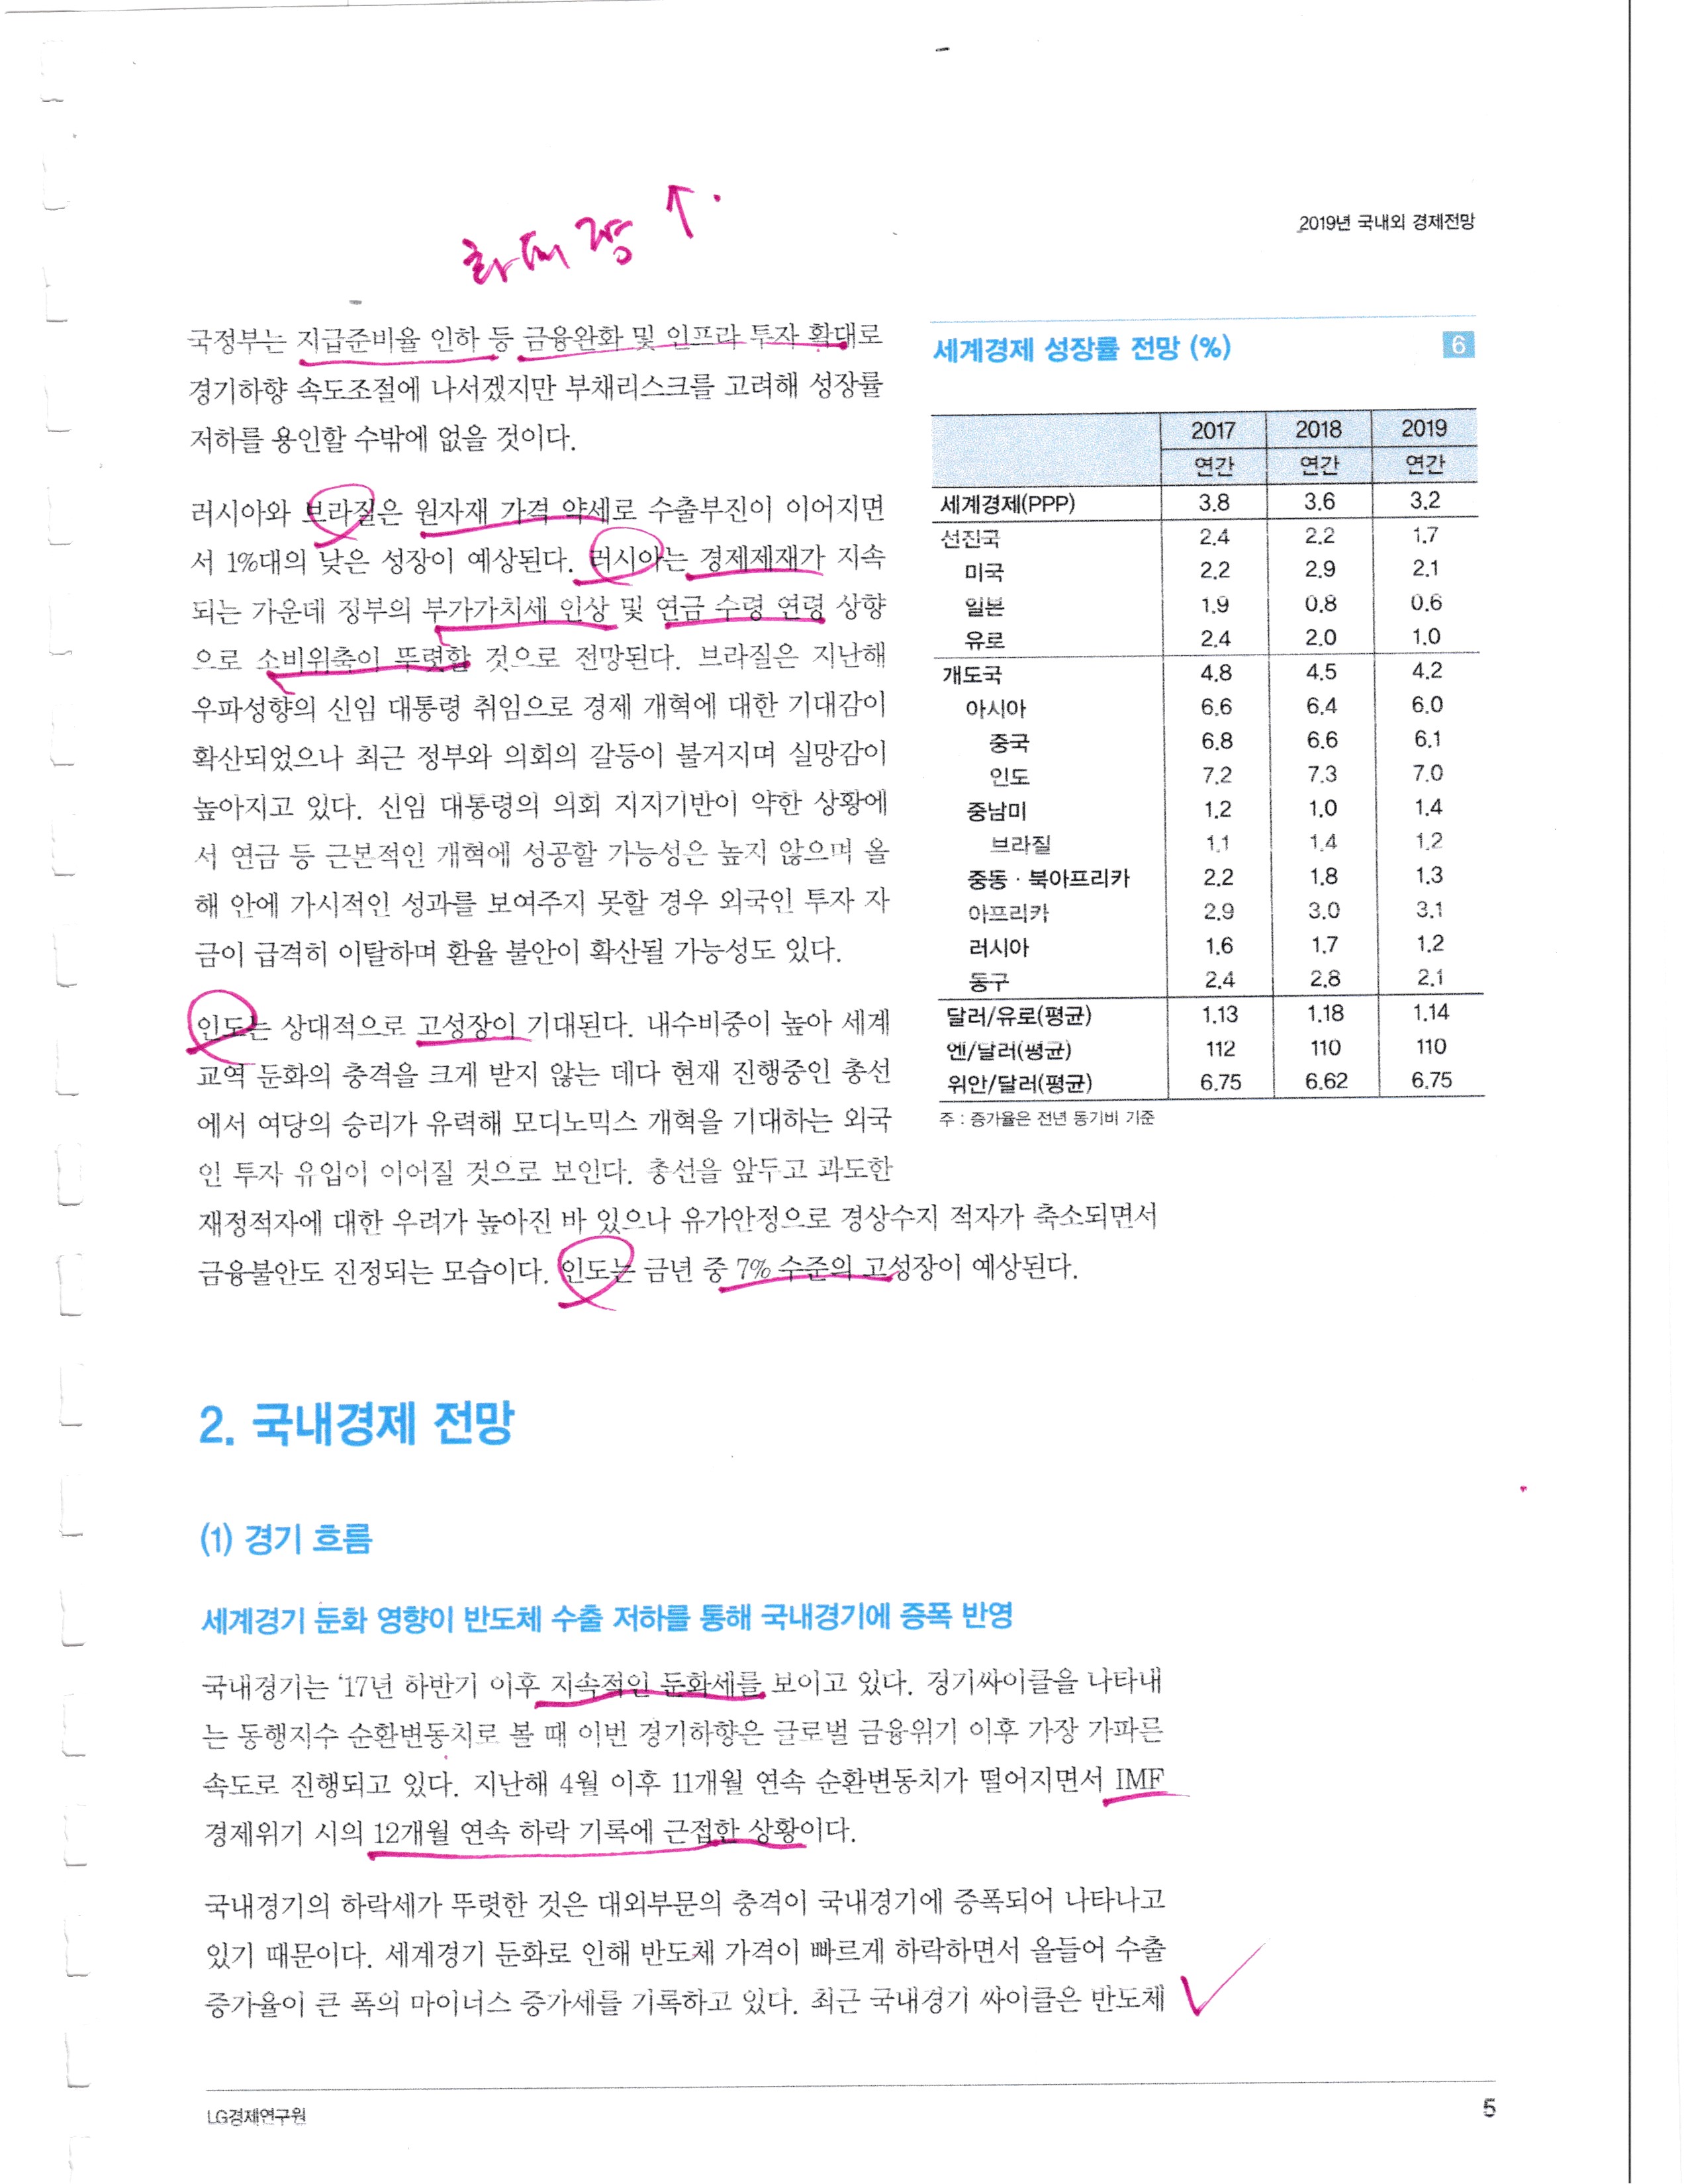 화폐량 ↑
2019년 국내외 경제전망
국정부는 지급준비율 인하 등 금융완화 및 인프라 투자 확대로
경기하향 속도조절에 나서겠지만 부채리스크를 고려해 성장률
저하를 용인할 수밖에 없을 것이다.
러시아와 브라질은 원자재 가격 약세로 수출부진이 이어지면
서 1%대의 낮은 성장이 예상된다. 러시아는 경제제재가 지속
되는 가운데 정부의 부가가치세 인상 및 연금 수령 연령 상향
으로 소비위축이 뚜렷할 것으로 전망된다. 브라질은 지난해
우파성향의 신임 대통령 취임으로 경제 개혁에 대한 기대감이
확산되었으나 최근 정부와 의회의 갈등이 불거지며 실망감이
높아지고 있다. 신임 대통령의 의회 지지기반이 약한 상황에
서 연금 등 근본적인 개혁에 성공할 가능성은 높지 않으며 올
해 안에 가시적인 성과를 보여주지 못할 경우 외국인 투자 자
금이 급격히 이탈하며 환율 불안이 확산될 가능성도 있다.
인도는 상대적으로 고성장이 기대된다. 내수비중이 높아 세계
교역 둔화의 충격을 크게 받지 않는 데다 현재 진행중인 총선
에서 여당의 승리가 유력해 모디노믹스 개혁을 기대하는 외국
인 투자 유입이 이어질 것으로 보인다. 총선을 앞두고 과도한
재정적자에 대한 우려가 높아진 바 있으나 유가안정으로 경상수지 적자가 축소되면서
금융불안도 진정되는 모습이다. 인도는 금년 중 7% 수준의 고성장이 예상된다.
세계경제 성장률 전망 (%) 6
2017 2018 2019
연간 연간 연간
세계경제(PPP) 3.8 3.6 3.2
선진국 2.4 2.2 1.7
미국 2.2 2.9 2.1
일본 1.9 0.8 0.6
유로 2.4 2.0 1.0
개도국 4.8 4.5 4.2
아시아 6.6 6.4 6.0
중국 6.8 6.6 6.1
인도 7.2 7.3 7.0
중남미 1.2 1.0 1.4
브라질 1.1 1.4 1.2
중동·북아프리카 2.2 1.8 1.3
아프리카 2.9 3.0 3.1
러시아 1.6 1.7 1.2
동구 2.4 2.8 2.1
달러/유로(평균) 1.13 1.18 1.14
엔/달러(평균) 112 110 110
위안/달러(평균) 6.75 6.62 6.75
주 : 증가율은 전년 동기비 기준
2. 국내경제 전망
(1) 경기 흐름
세계경기 둔화 영향이 반도체 수출 저하를 통해 국내경기에 증폭 반영
국내경기는 ‘17년 하반기 이후 지속적인 둔화세를 보이고 있다. 경기싸이클을 나타내
는 동행지수 순환변동치로 볼 때 이번 경기하향은 글로벌 금융위기 이후 가장 가파른
속도로 진행되고 있다. 지난해 4월 이후 11개월 연속 순환변동치가 떨어지면서 IMF
경제위기 시의 12개월 연속 하락 기록에 근접한 상황이다.
국내경기의 하락세가 뚜렷한 것은 대외부문의 충격이 국내경기에 증폭되어 나타나고
있기 때문이다. 세계경기 둔화로 인해 반도체 가격이 빠르게 하락하면서 올들어 수출
증가율이 큰 폭의 마이너스 증가세를 기록하고 있다. 최근 국내경기 싸이클은 반도체
LG경제연구원 5